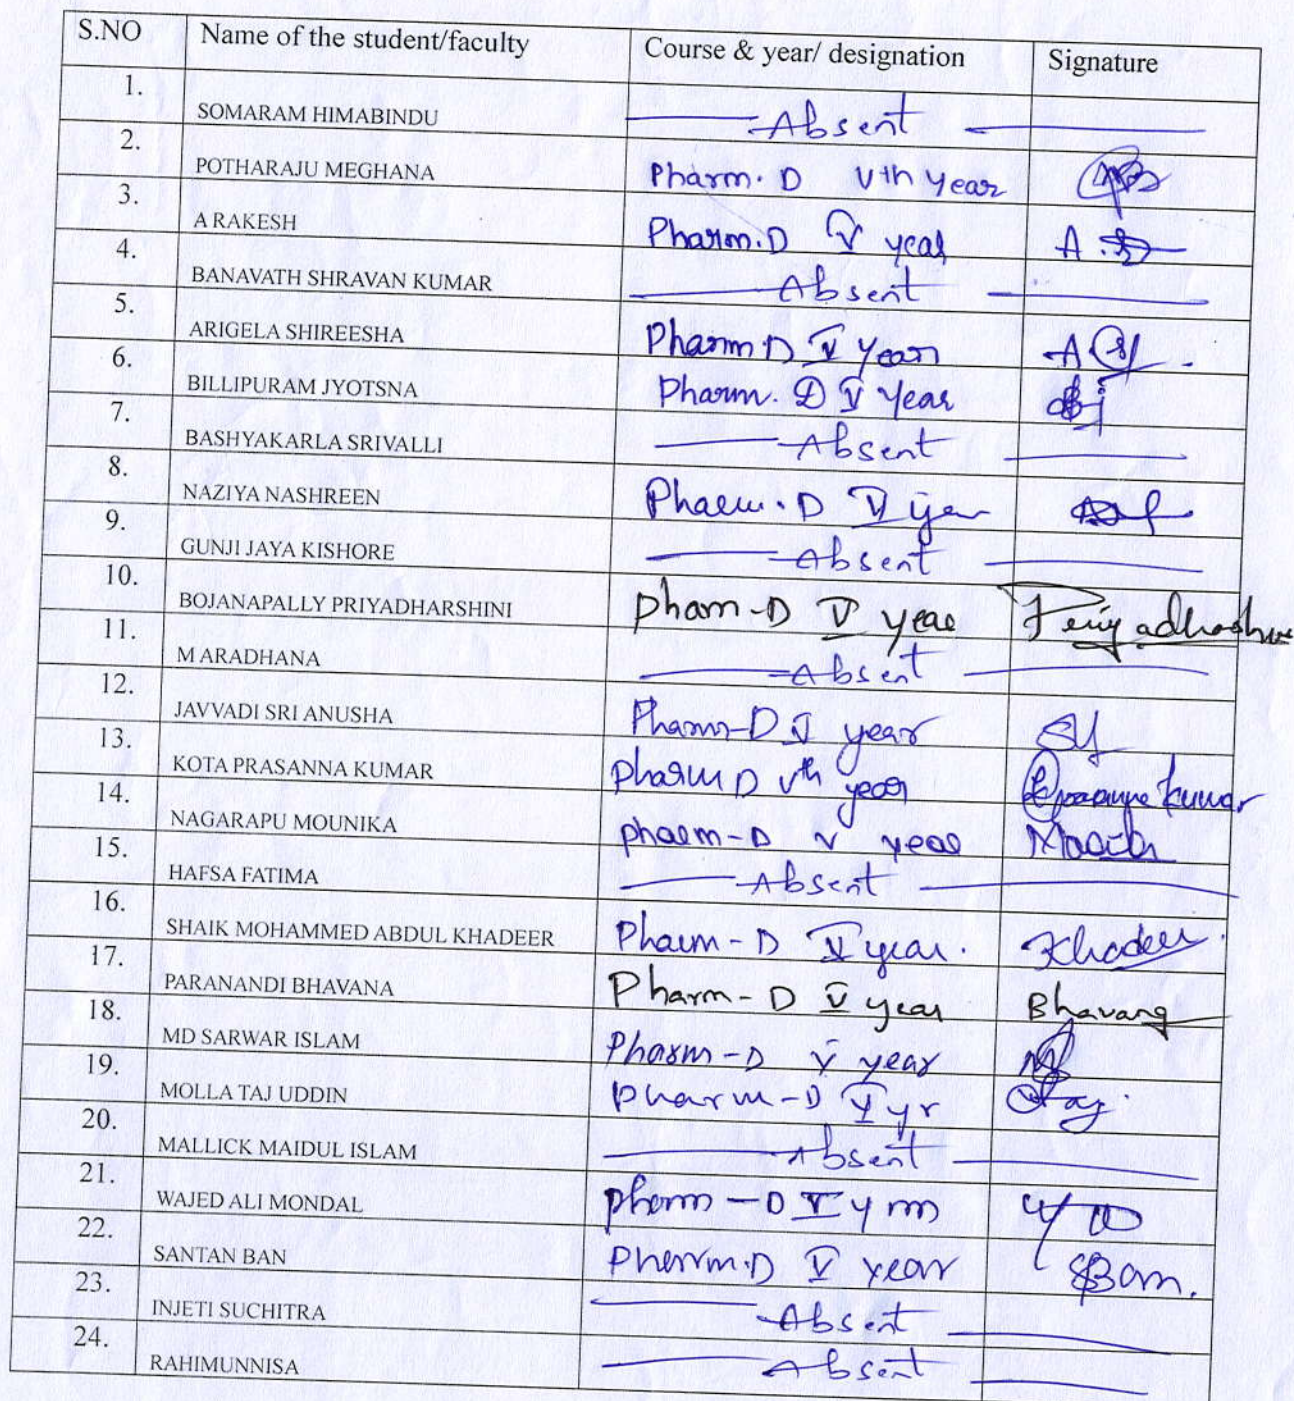 S.NO Name of the student/faculty Course & year/ designation Signature
1. SOMARAM HIMABINDU Absent
2. POTHARAJU MEGHANA Pharm. D Vth year
3. A RAKESH Pharm.D V year A.
4. BANAVATH SHRAVAN KUMAR Absent
5. ARIGELA SHIREESHA Pharm D V year A
6. BILLIPURAM JYOTSNA Pharm. D V Year Bj
7. BASHYAKARLA SRIVALLI Absent
8. NAZIYA NASHREEN Pharm. D V year
9. GUNJI JAYA KISHORE Absent
10. BOJANAPALLY PRIYADHARSHINI Pharm-D V year Priyadharshini
11. M ARADHANA Absent
12. JAVVADI SRI ANUSHA Pharm-D V year
13. KOTA PRASANNA KUMAR Pharm D Vth year K prasanna kumar
14. NAGARAPU MOUNIKA Pharm-D V year
15. HAFSA FATIMA Absent
16. SHAIK MOHAMMED ABDUL KHADEER Pharm-D V year. Khadeer
17. PARANANDI BHAVANA Pharm-D V year Bhavana
18. MD SARWAR ISLAM Pharm-D V year
19. MOLLA TAJ UDDIN Pharm-D V yr Taj
20. MALLICK MAIDUL ISLAM Absent
21. WAJED ALI MONDAL Pharm-D V
22. SANTAN BAN Pharm.D V year SBan.
23. INJETI SUCHITRA Absent
24. RAHIMUNNISA Absent